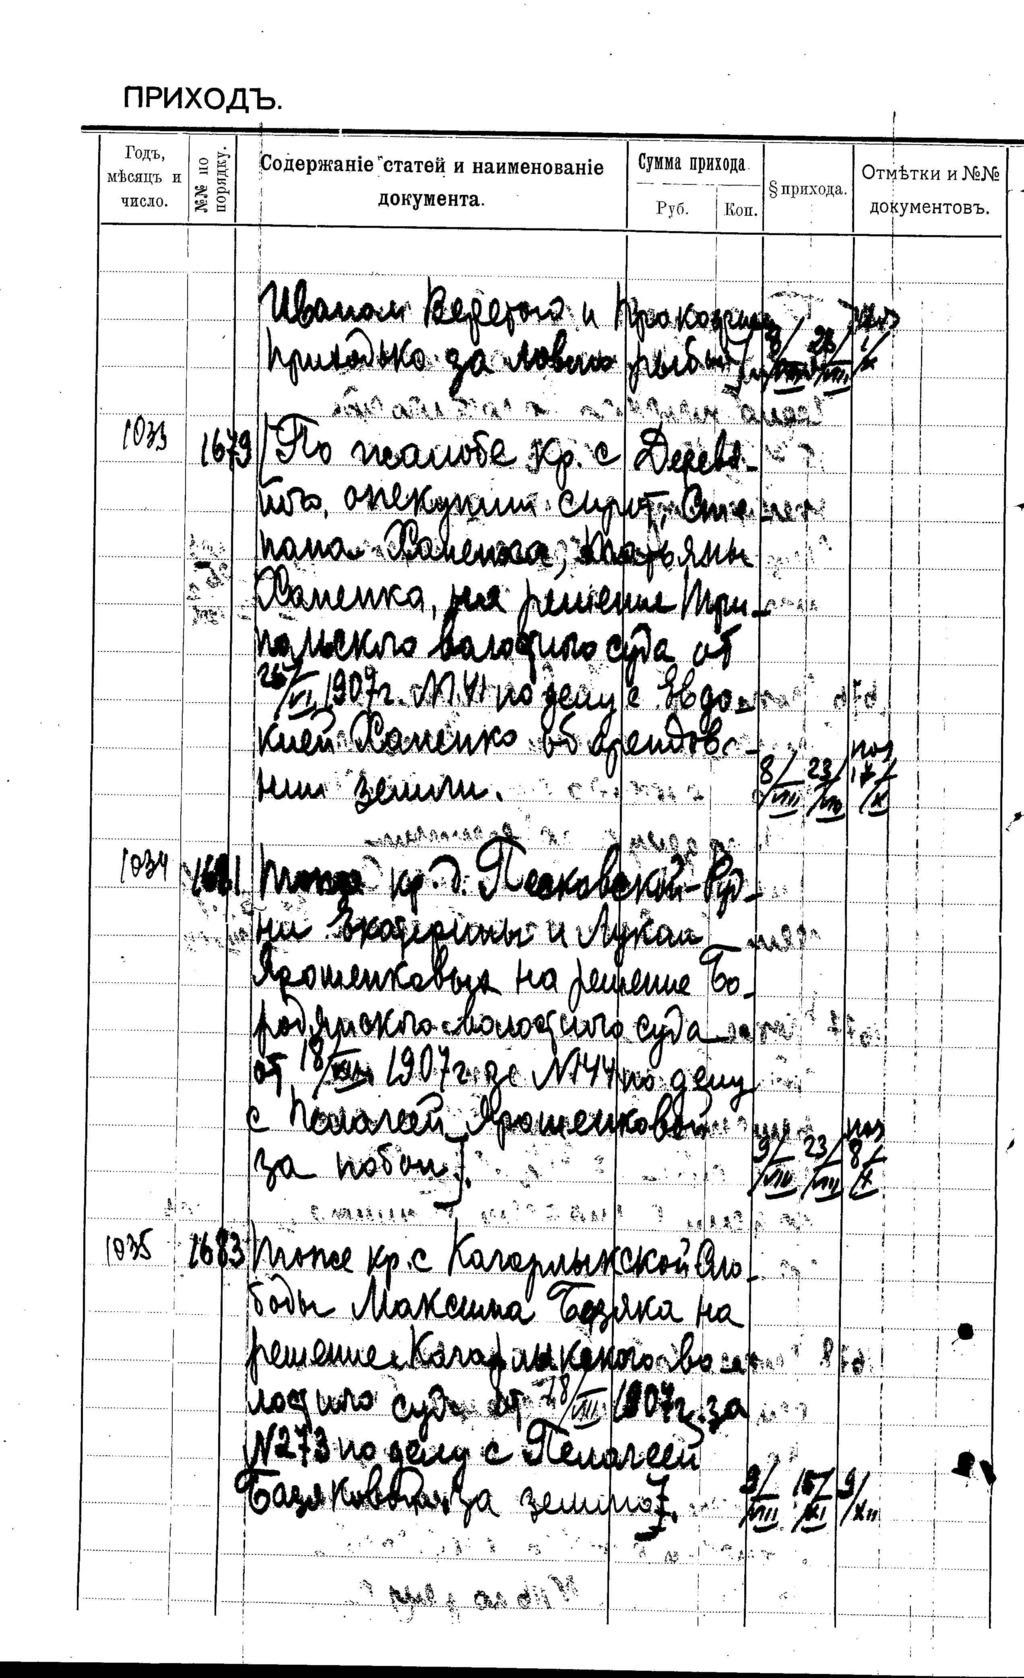 ПРИХОДЪ.
Годъ, мѣсяцъ и число.
№№ по порядку.
Содержаніе статей и наименованіе документа.
Сумма прихода
Руб.
Коп.
§ прихода.
Отмѣтки и №№ документовъ.
Иваном Веретой и
Приходько за ловлю рыбы
1033 1679 [По жалобе кр. с Деревя-
ного, опекунши сирот, Сте-
пана Хаменка, Татьяны
Хаменка, на решение Три-
польского волостного суда от
26/VI 1907г. N141 по делу с Евдо-
кией Хаменко об арендов
нии земли. 8/VIII 23/VIII 17/X
1034 1681 Тоже кр. д. Песковской-Руд-
ни Екатерины и Лукаи
Ярошенковых на решение Бо-
родянского волостного суда
от 18/ 1907г за N144 по делу
с Пелагеей Ярошенковой
за побои]. 9/VIII 23/VIII 8/X
1035 1683 Тоже кр. с Кагарлыкской Сло-
боды Максима Базяка на
решение Кагарлыкского во
лостного суда от 18/VII 1907г. за
N273 по делу с Пелагеей
Базяковой за землю]. 9/VIII 15/XI 9/XII